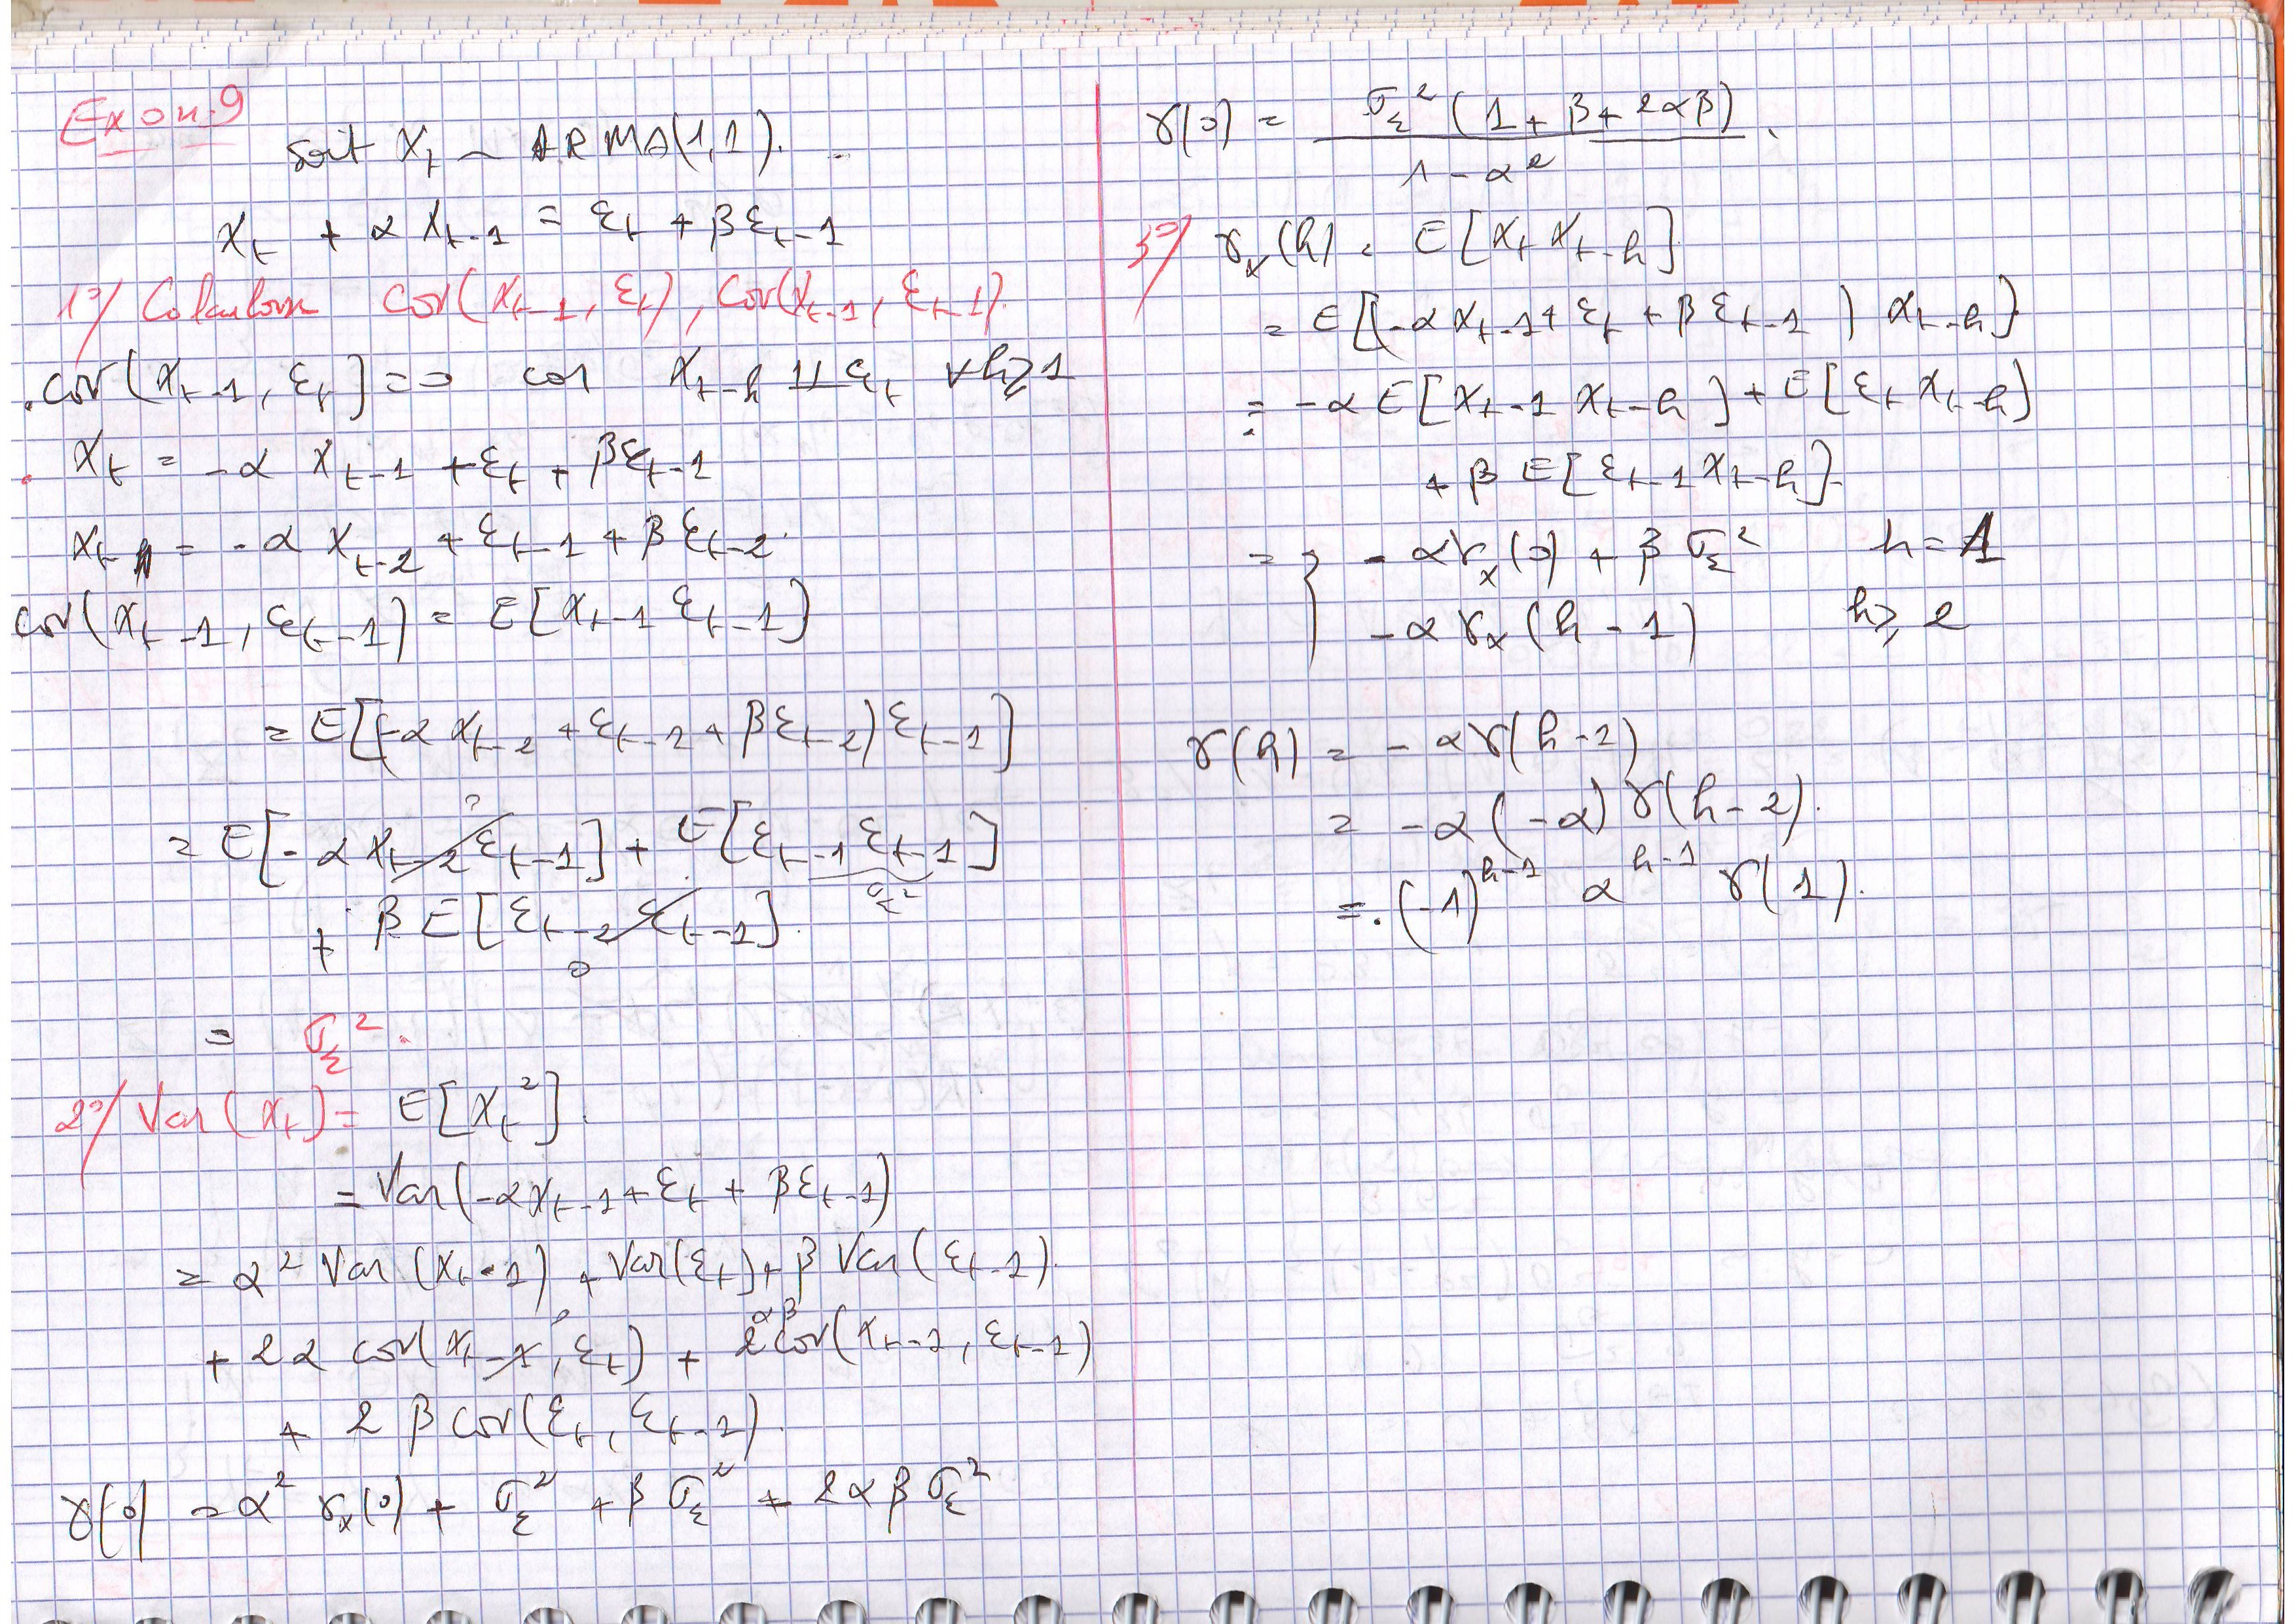 Exon.9
soit X_t ~ ARMA(1,1).
X_t + α X_{t-1} = ε_t + β ε_{t-1}
1°/ Calculons cov(X_{t-1}, ε_t), cov(X_{t-1}, ε_{t-1}).
. cov(X_{t-1}, ε_t) = 0 car X_{t-h} ⊥⊥ ε_t ∀ h ≥ 1
. X_t = -α X_{t-1} + ε_t + β ε_{t-1}
X_{t-1} = -α X_{t-2} + ε_{t-1} + β ε_{t-2}.
cov(X_{t-1}, ε_{t-1}) = E[X_{t-1} ε_{t-1}]
= E[(-α X_{t-2} + ε_{t-2} + β ε_{t-2}) ε_{t-1}]
= E[-α X_{t-2} ε_{t-1}] + E[ε_{t-1} ε_{t-1}]
+ β E[ε_{t-2} ε_{t-1}].
0
= σ_ε².
2°/ Var(X_t) = E[X_t²].
= Var(-α X_{t-1} + ε_t + β ε_{t-1})
= α² Var(X_{t-1}) + Var(ε_t) + β Var(ε_{t-1}).
+ 2α cov(X_{t-1}, ε_t) + 2αβ cov(X_{t-1}, ε_{t-1})
+ 2β cov(ε_t, ε_{t-1}).
γ(0) = α² γ_x(0) + σ_ε² + β σ_ε² + 2αβ σ_ε²
γ(0) = σ_ε² (1 + β + 2αβ) / 1 - α²
3°/ γ_x(h) = E[X_t X_{t-h}]
= E[(-α X_{t-1} + ε_t + β ε_{t-1}) X_{t-h}]
= -α E[X_{t-1} X_{t-h}] + E[ε_t X_{t-h}]
+ β E[ε_{t-1} X_{t-h}].
= { -α γ_x(0) + β σ_ε² h = 1
-α γ_x(h-1) h ≥ 2
γ(h) = -α γ(h-1)
= -α(-α) γ(h-2).
= . (-1)^{h-1} α^{h-1} γ(1).